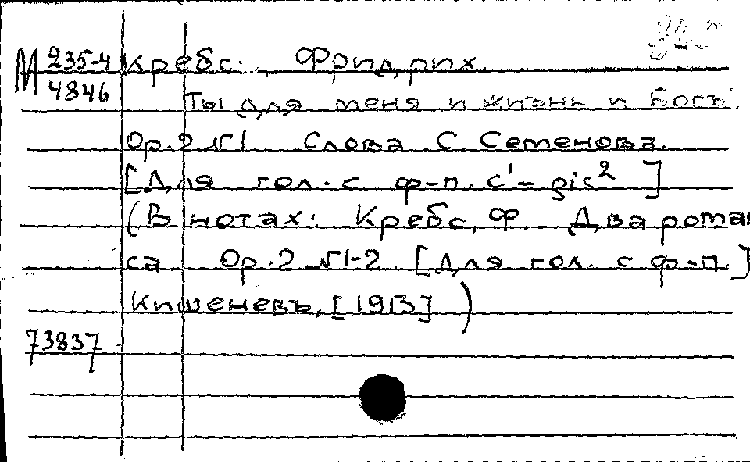 М 235-4
4846
Кребс. Фридрих.
Ты для меня и жизнь и Богъ.
Op.2 №1 Слова С. Семенова.
[Для гол. с ф-п. c'-gis²]
(В нотах: Кребс, Ф. Два рома
са Op.2 №1-2 [Для гол. с ф-п.]
Кишеневъ, [1913])
73837